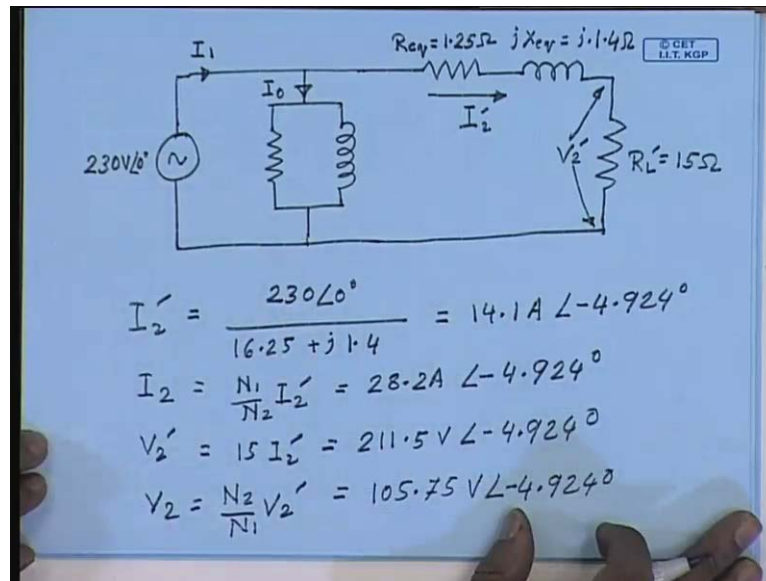 Req=1.25Ω jXeq=j.1.4Ω
© CET
I.I.T. KGP
I1
I0
I2′
230V∠0°
V2′
RL′=15Ω
I2′ = 230∠0° / 16.25 + j 1.4 = 14.1A ∠-4.924°
I2 = N1/N2 I2′ = 28.2A ∠-4.924°
V2′ = 15 I2′ = 211.5 V ∠-4.924°
V2 = N2/N1 V2′ = 105.75 V ∠-4.924°